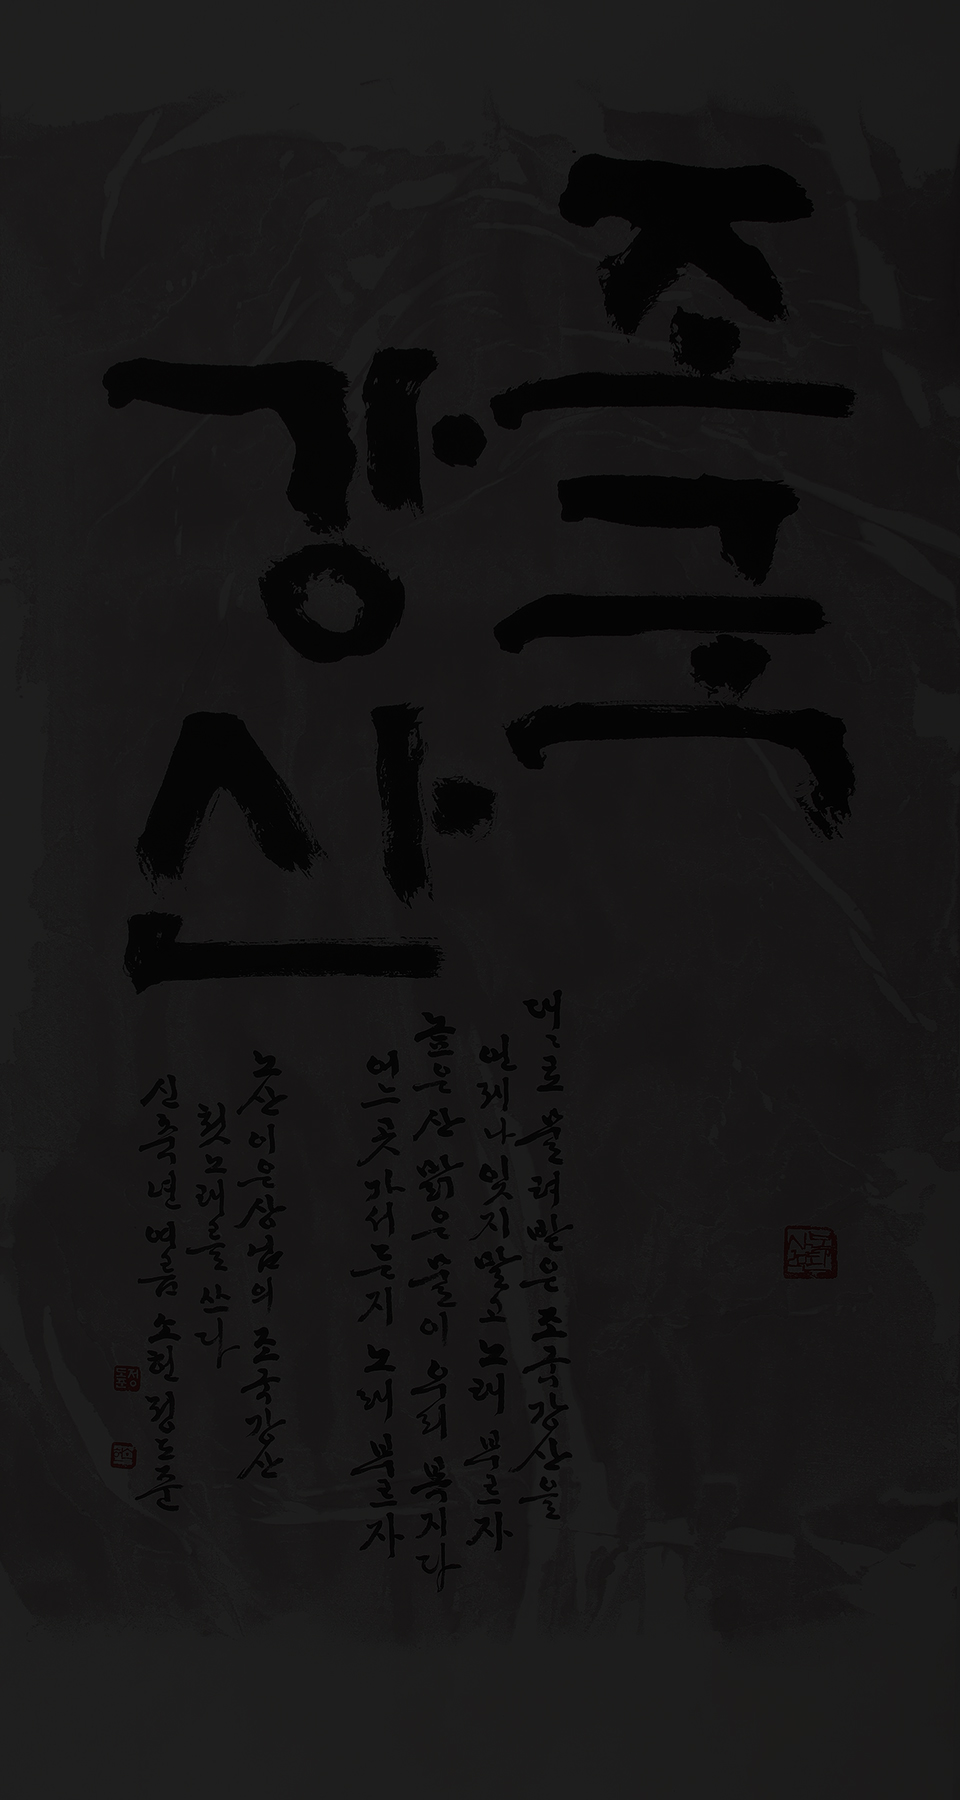 조국
강산
대대로 물려받은 조국강산을
언제나 잊지말고 노래 부르자
높은산 맑은물이 우리 복지다
어느곳 가서든지 노래 부르자
노산 이은상님의 조국강산
첫노래를 쓰다
신축년 여름 소헌 정도준